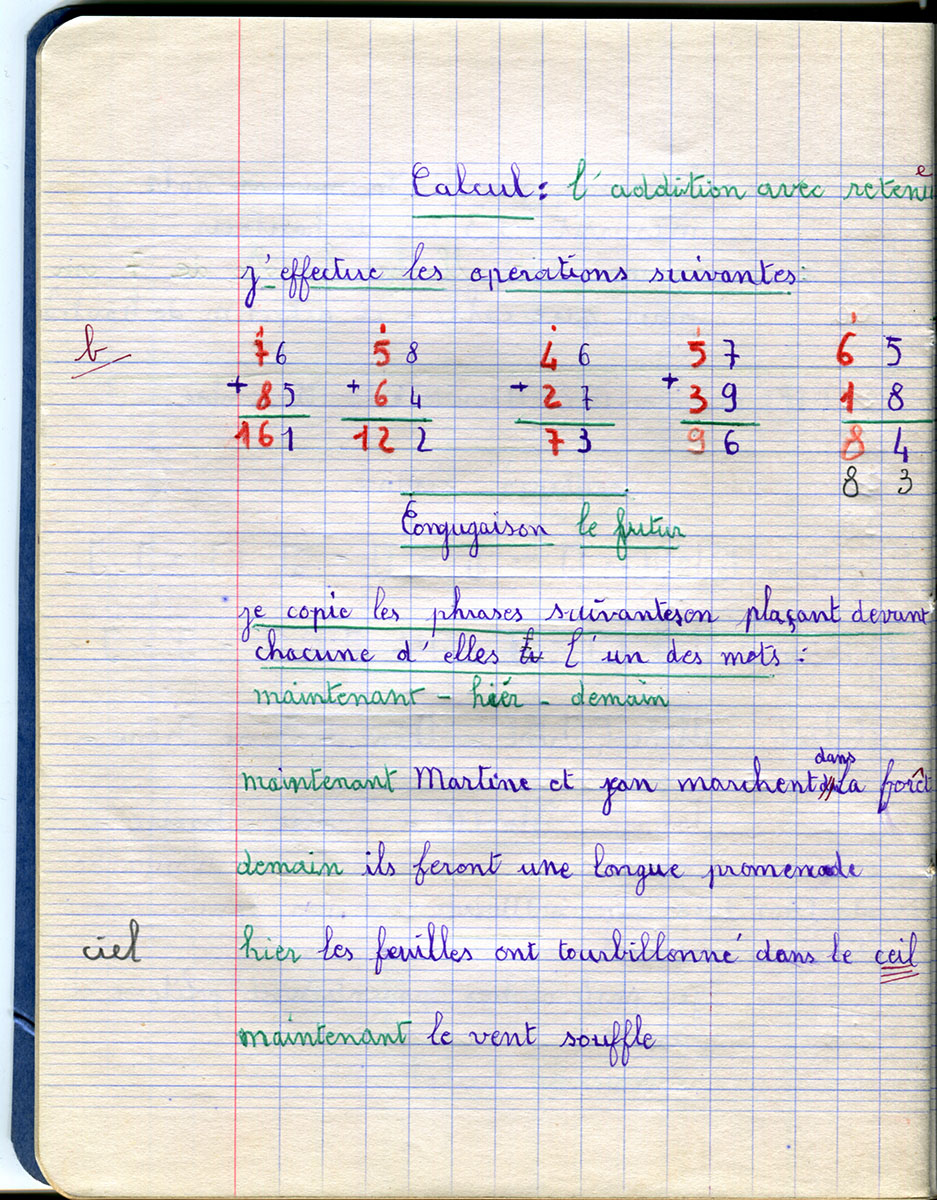 Calcul : l'addition avec retenue
j'effectue les opérations suivantes :
b
1 1 1 1 1
76 58 46 57 65
+ 85 + 64 + 27 + 39 18
161 122 73 96 84
83
Conjugaison le futur
je copie les phrases suivantes en plaçant devant
chacune d'elles l'un des mots :
maintenant - hier - demain
dans
maintenant Martine et jean marchent la forêt
demain ils feront une longue promenade
ciel hier les feuilles ont tourbillonné dans le ceil
maintenant le vent souffle